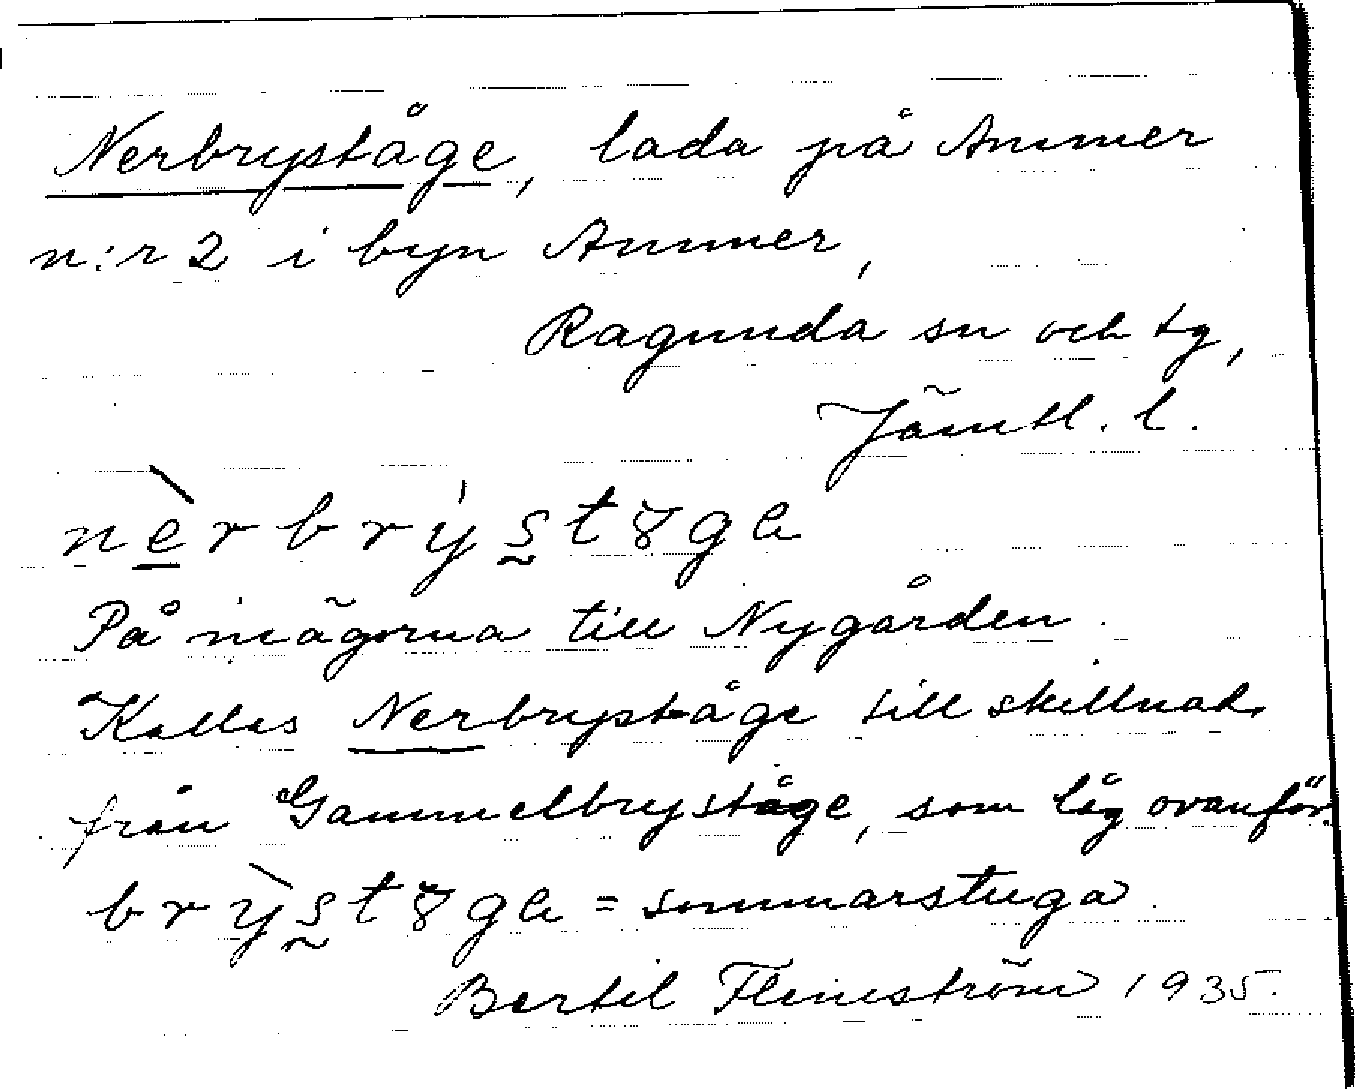 Nerbryståge, lada på Ammer
n:r 2 i byn Ammer,
Ragunda sn och tg,
Jämtl. l.
nèrbrýstȣga
På inägorna till Nygården.
Kallas Nerbryståge till skillnad
från Gammelbryståge, som låg ovanför.
brỳstȣga = sommarstuga.
Bertil Flemström 1935.